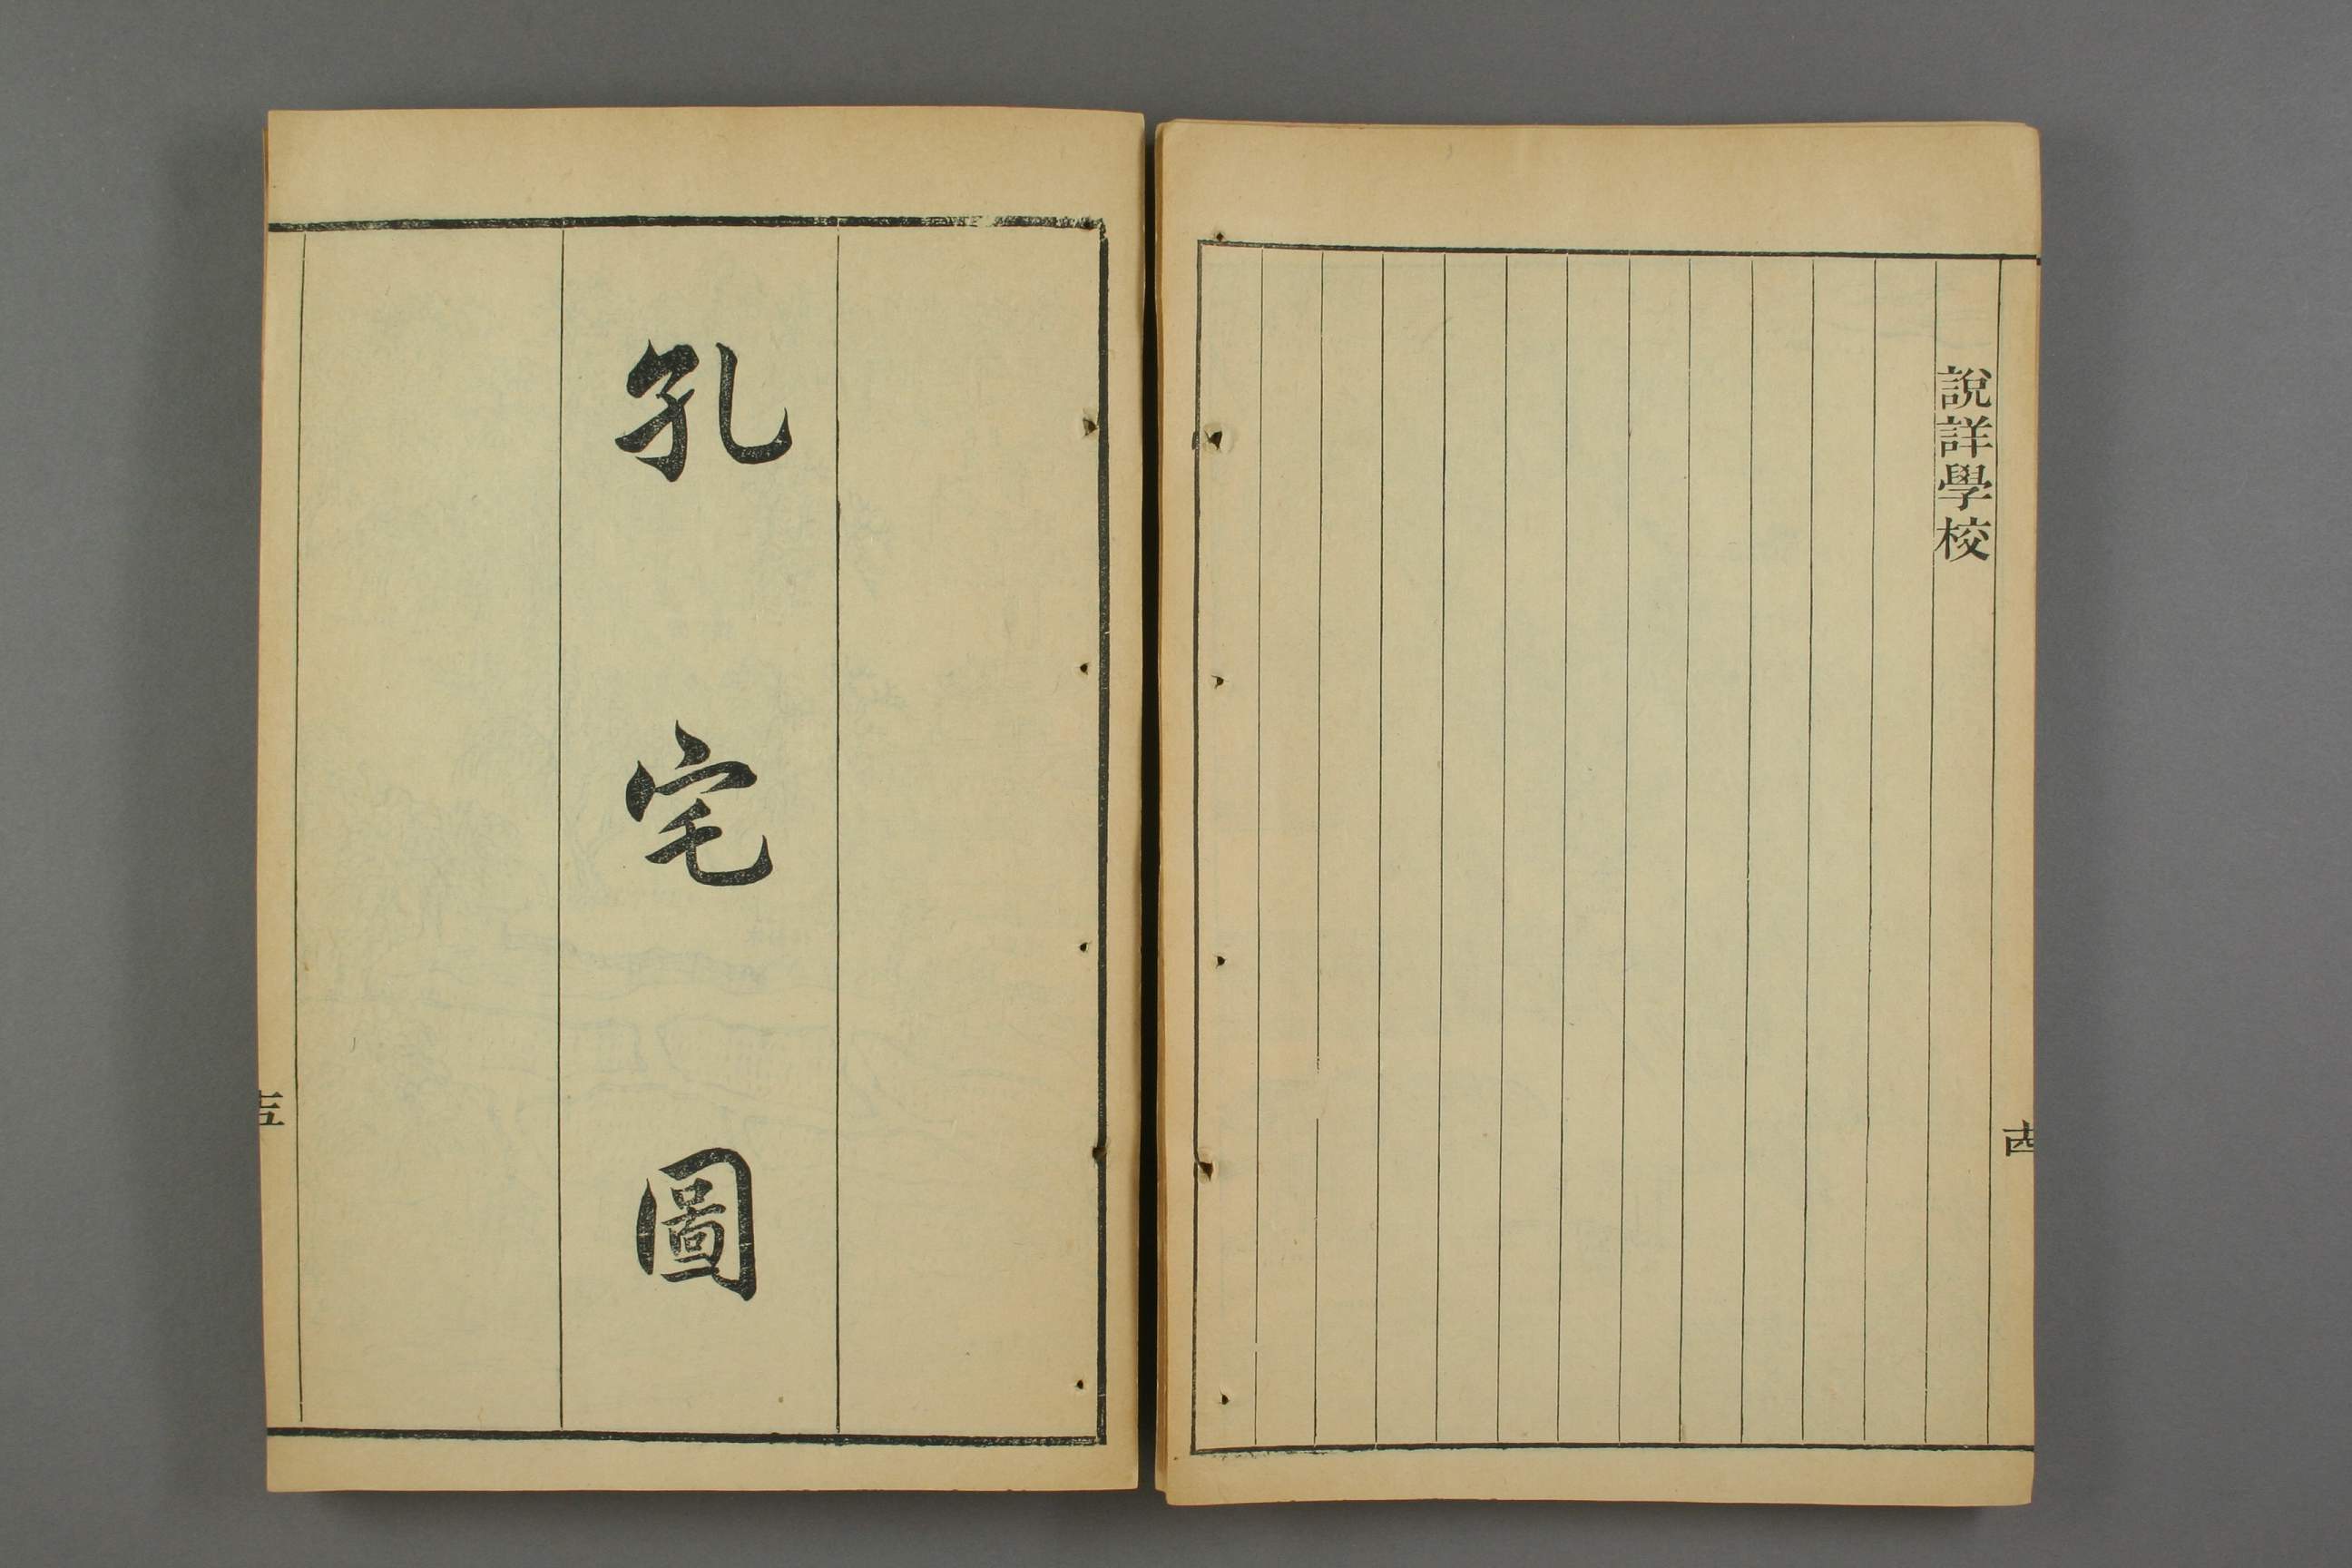 說詳學校
十四
孔宅圖
十五